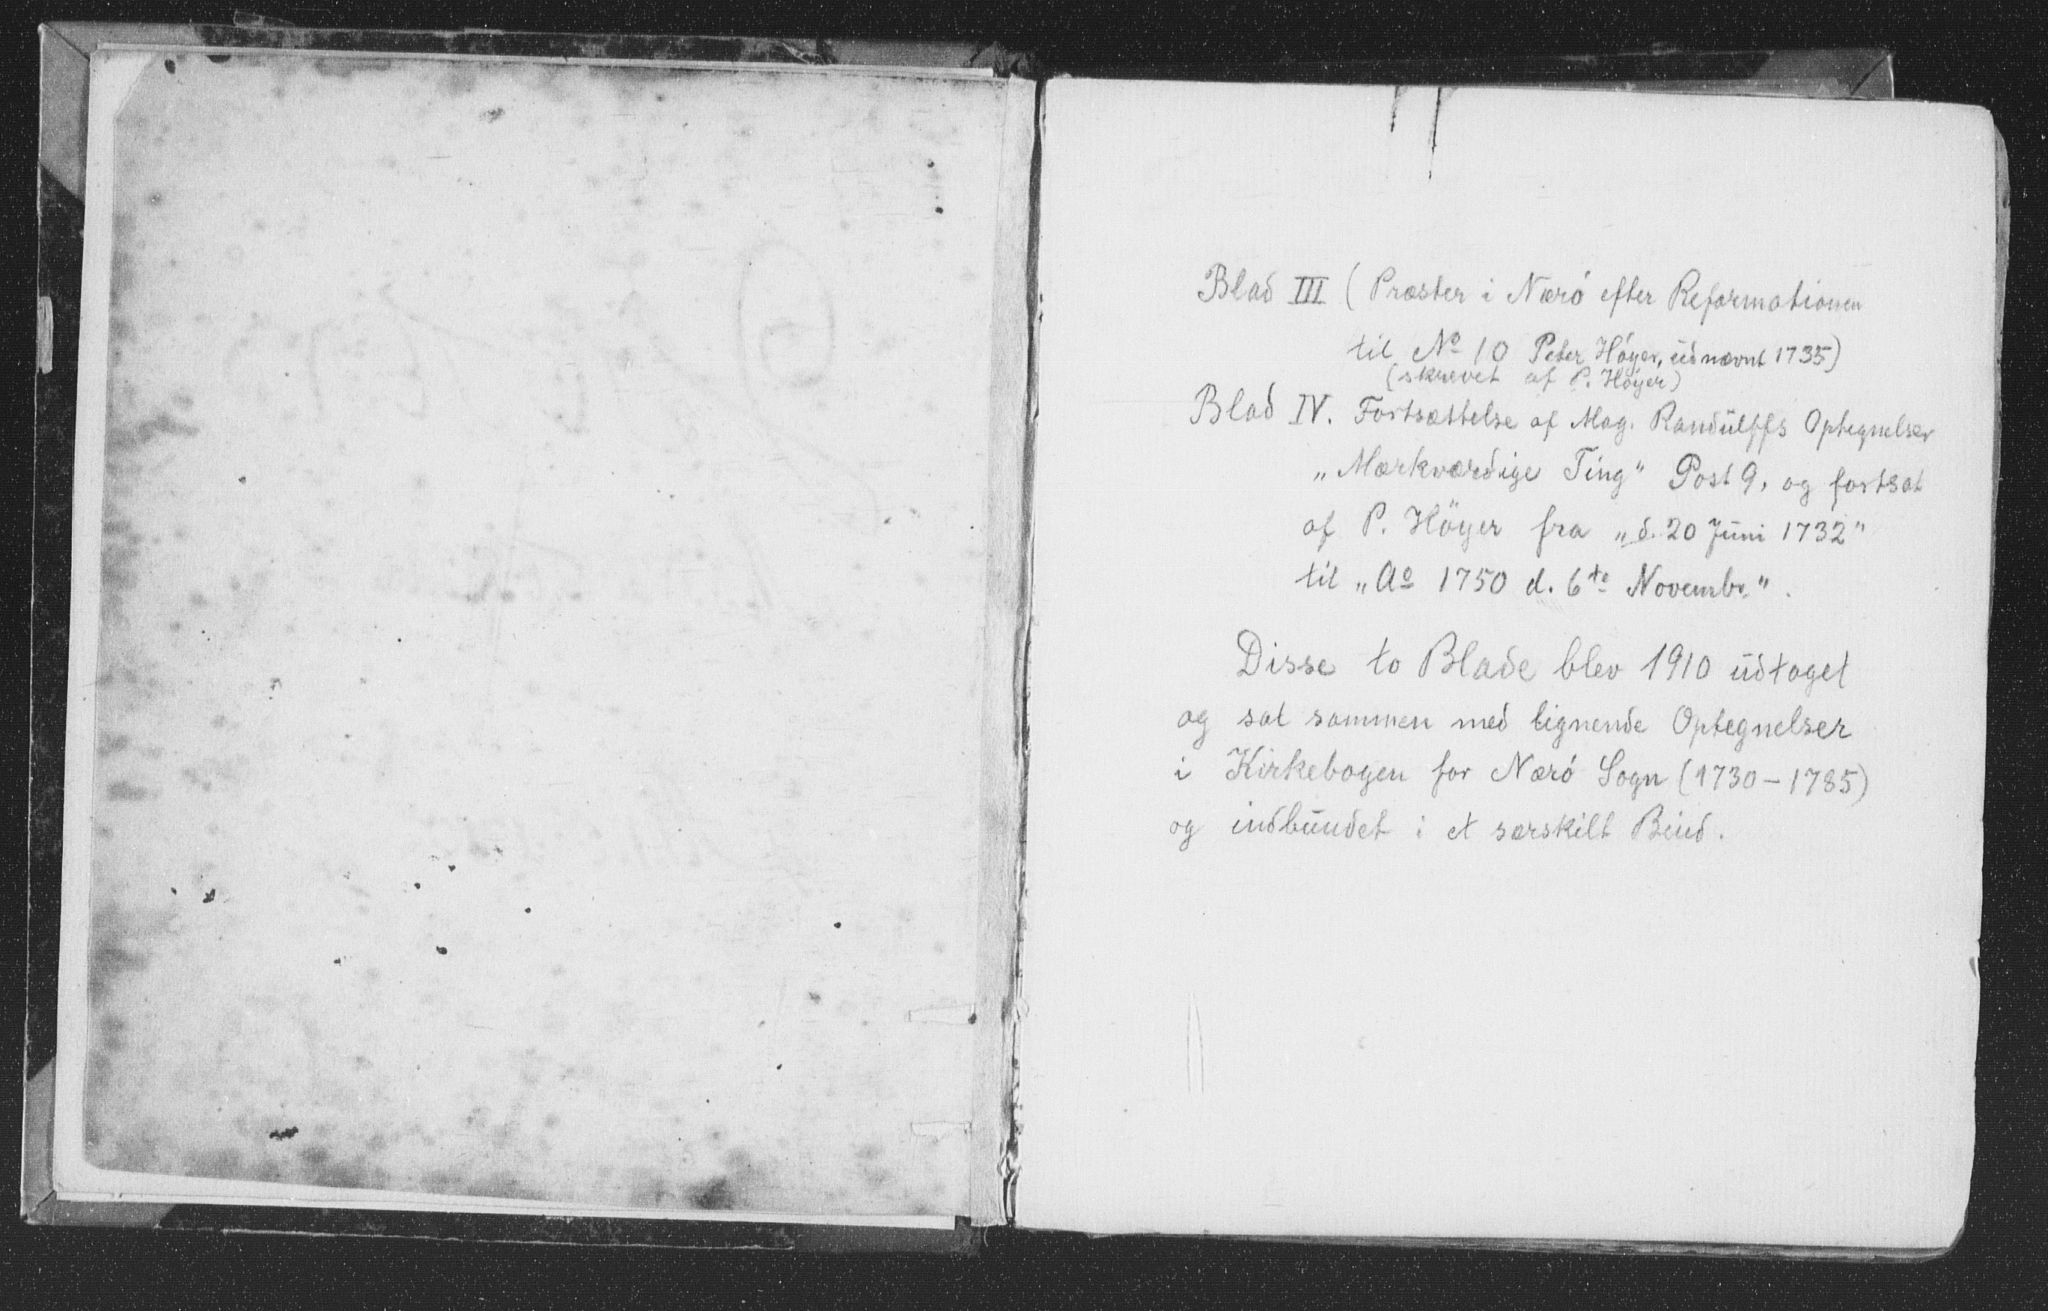 Blad III ( Præster i Nærø efter Reformationen
til No 10 Peter Høyer, udnævnt 1735)
(skrevet af P. Høyer)
Blad IV. Fortsættelse af Mag. Randulffs Optegnelser
„Mærkværdige Ting" Post 9, og fortsat
af P. Høyer fra „d. 20 Juni 1732"
til „Ao 1750 d. 6te Novembr."
Disse to Blade blev 1910 udtaget
og sat sammen med lignende Optegnelser
i Kirkebogen for Nærø Sogn (1730–1785)
og indbundet i et særskilt Bind.